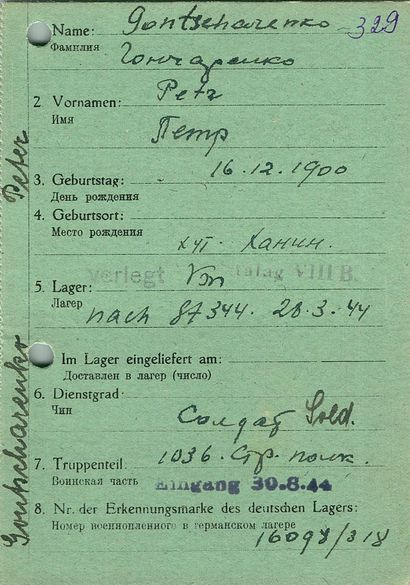 Name: Gontscharenko 329
Фамилия Гончаренко
2. Vornamen: Petr
Имя Петр
16.12.1900
3. Geburtstag:
День рождения
4. Geburtsort:
Место рождения
хут. Ханин.
verlegt Von Stalag VIII B
5. Lager:
Лагерь nach 87344. 28.3.44
Im Lager eingeliefert am:
Доставлен в лагерь (число)
6. Dienstgrad:
Чин
Солдат Sold.
7. Truppenteil: 1036. Стр. полк.
Воинская часть Eingang 30.8.44
8. Nr. der Erkennungsmarke des deutschen Lagers:
Номер военнопленного в германском лагере
16098/318
Gontscharenko Peter